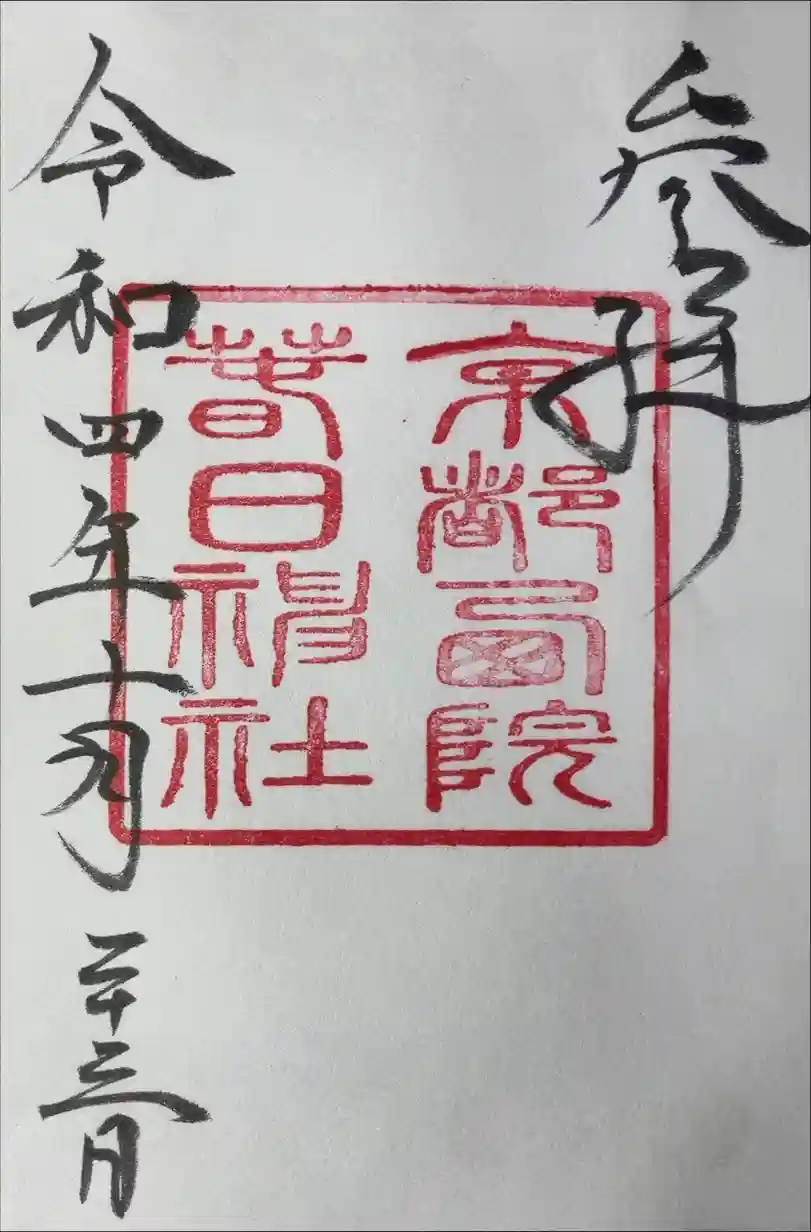 參拜
京都西院
春日神社
令和四年十月二十三日